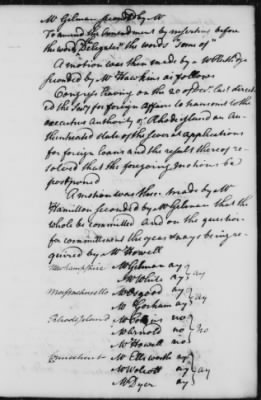 Mr Gilman seconded by Mr
To amend the Amendment by inserting before
the word Delegates" the words "some of"
A motion was then made by Mr Rutledge
seconded by Mr Hawkins as follows
Congress having on the 20 of Decr last direct
ed the Secy for foreign Affairs to transmit to the
executive Authority of Rhode Island an Au-
thenticated state of the several applications
for foreign loans and the result thereof re-
solved that the foregoing motions be
postponed
A motion was then made by Mr
Hamilton seconded by Mr Gilman that the
whole be committed and on the question
for commitment the yeas & nays being re-
quired by Mr Howell
New hampshire Mr Gilman ay } ay
Mr White ay
Massachusetts Mr Osgood ay } ay
Mr Gorham ay
Rhode Island Mr Collins no } no
Mr Arnold no
Mr Howell no
Connecticut Mr Ellsworth ay } ay
Mr Wolcott ay
Mr Dyer ay